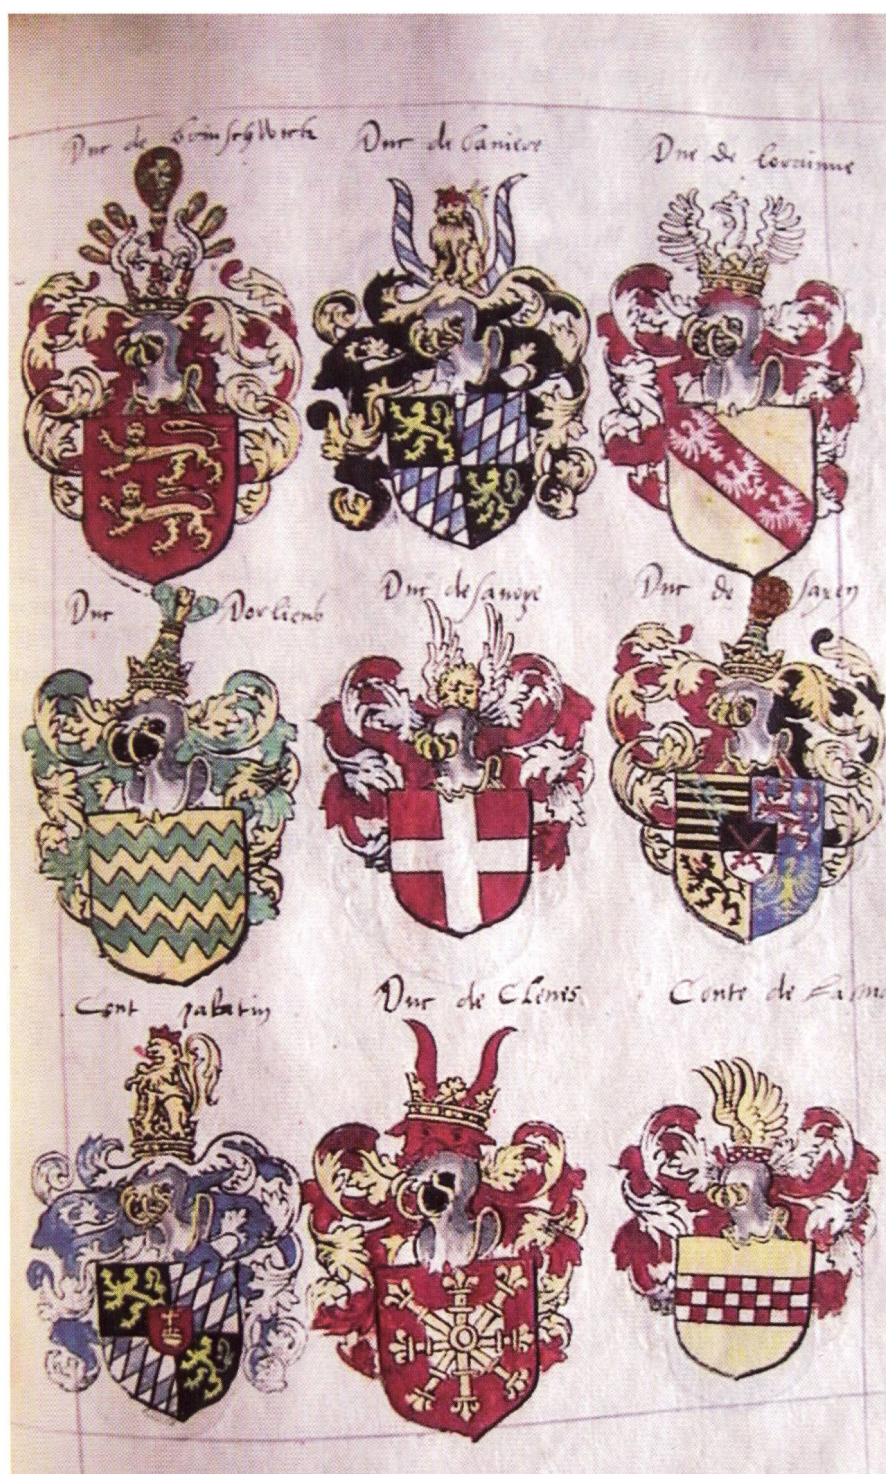 Duc de brunschwick
Duc de baviere
Duc de lorainne
Duc Dorliens
Duc de savoye
Duc de saxen
Cont palatin
Duc de Cleves
Conte de